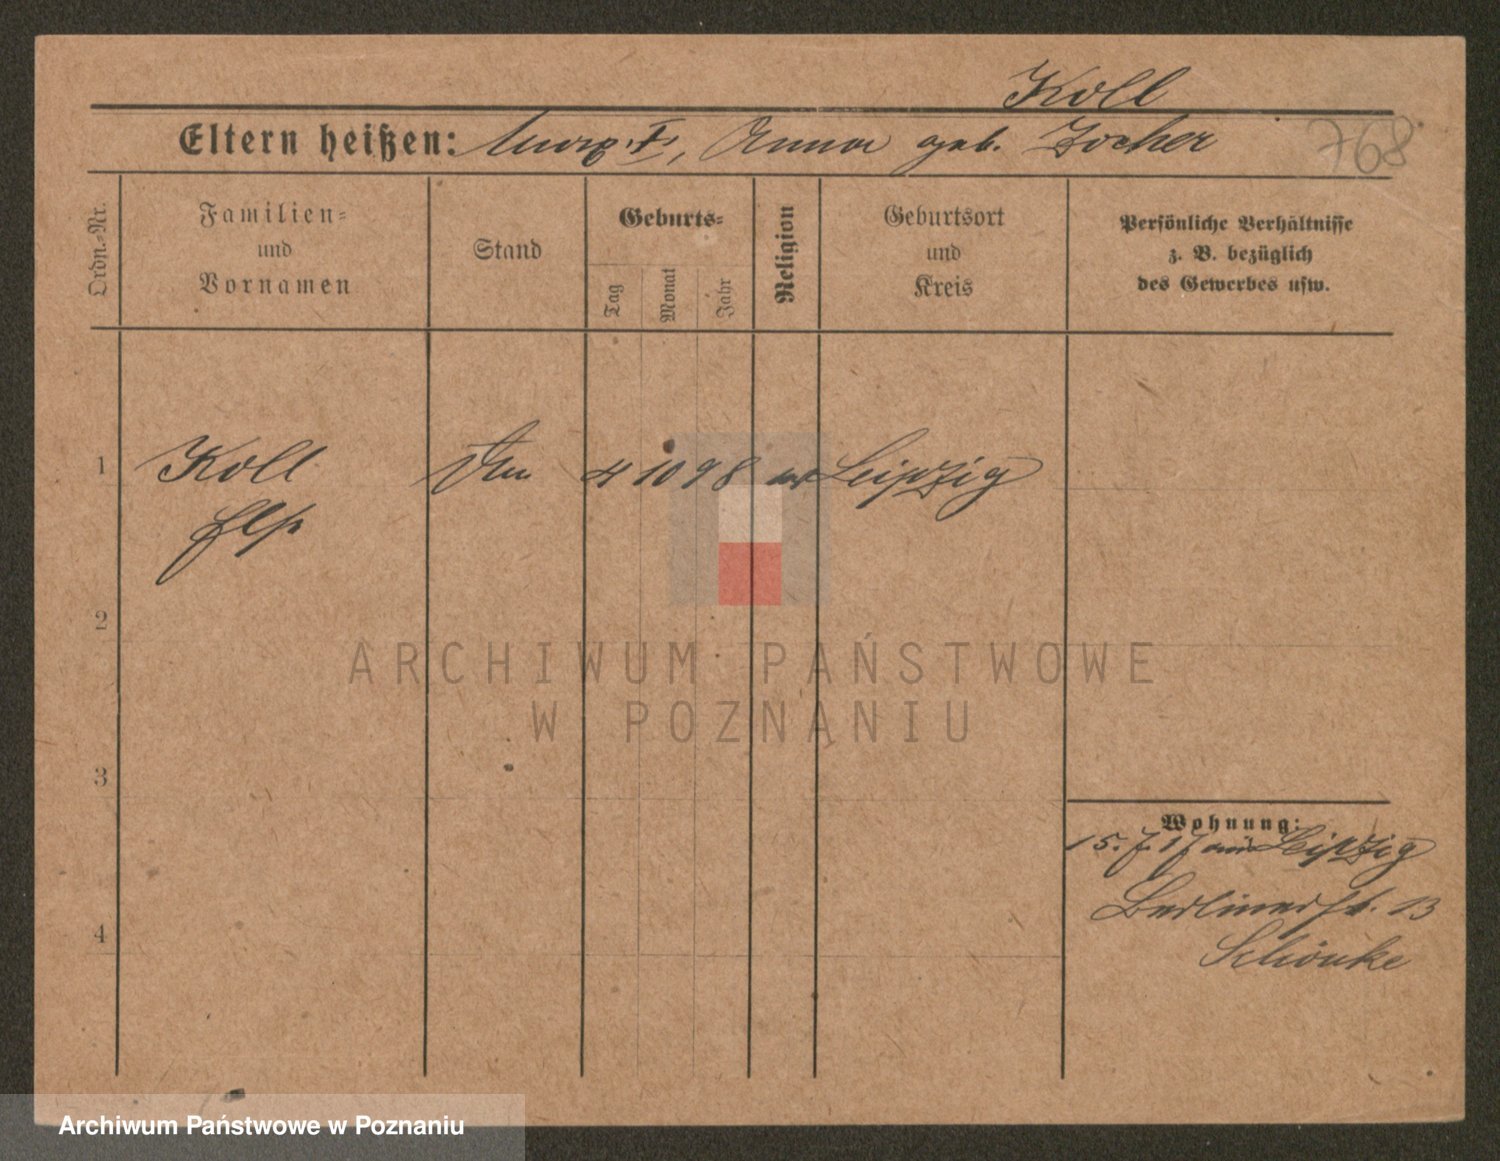 Koll
Eltern heißen: Anna geb. Zocher
768
Ordn.-Nr.
Familien=
und
Vornamen
Stand
Geburts=
Tag
Monat
Jahr
Religion
Geburtsort
und
Kreis
Persönliche Verhältnisse
z. B. bezüglich
des Gewerbes usw.
1
Koll 4 10 98 Leipzig
2
3
4
ARCHIWUM PAŃSTWOWE
W POZNANIU
Wohnung:
15. 7. 17 aus Leipzig
Berlinerst. 13
Schönke
Archiwum Państwowe w Poznaniu